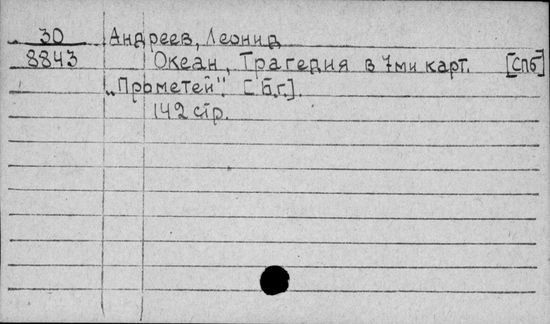 30 Андреев, Леонид
8843 Океан, Трагедия в 7ми карт. [Спб]
„Прометей". [Б.г.].
142 стр.